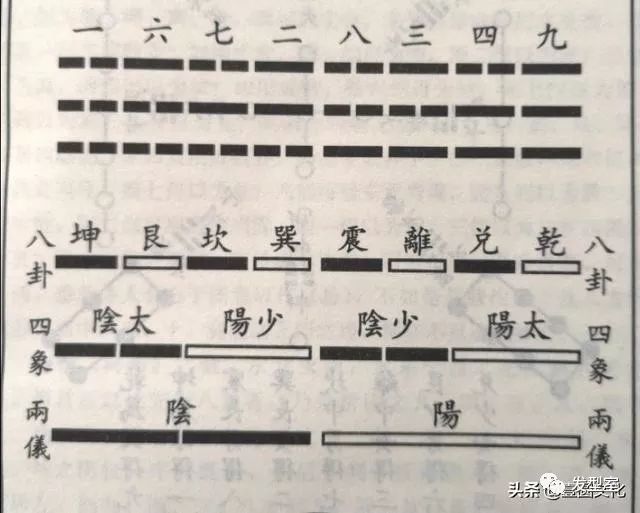 一 六 七 二 八 三 四 九
八卦 坤 艮 坎 巽 震 離 兑 乾 八卦
四象 陰太 陽少 陰少 陽太 四象
兩儀 陰 陽 兩儀
发型室
头条